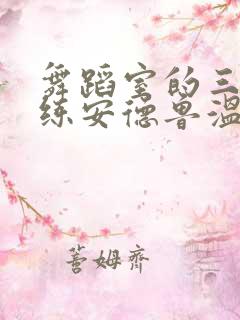 舞蹈室的三
练安德鲁温
蓍姆齐